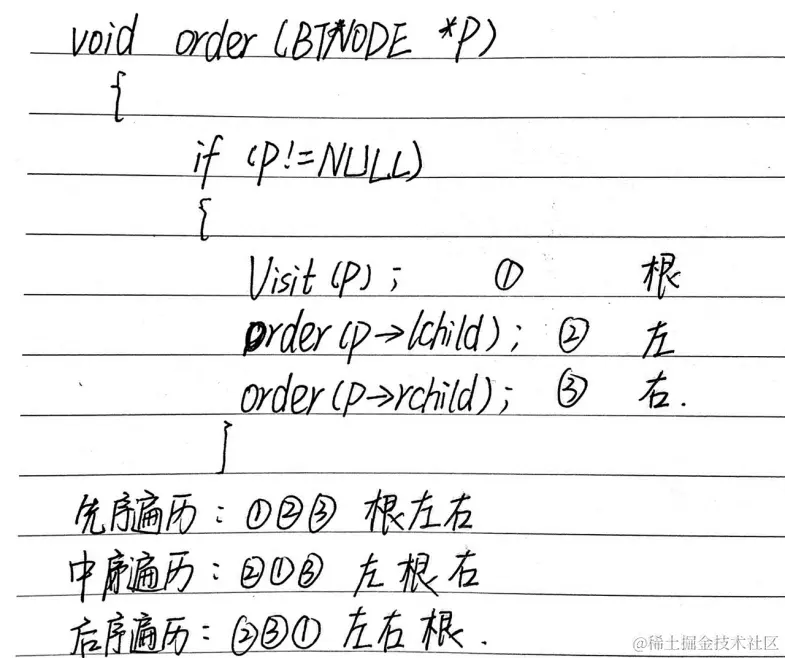 void order (BTNODE *P)
{
if (P!=NULL)
{
Visit (P); ① 根
order (P→lchild); ② 左
order (P→rchild); ③ 右.
}
先序遍历: ①②③ 根左右
中序遍历: ②①③ 左根右
后序遍历: ②③① 左右根.
@稀土掘金技术社区